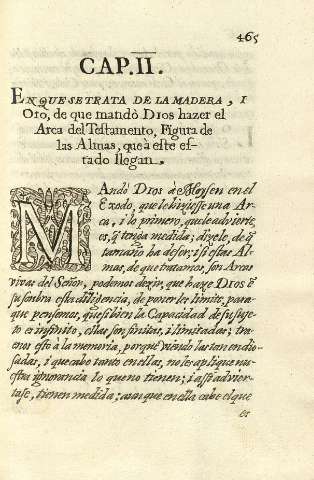 465
CAP. II.
EN QUE SE TRATA DE LA MADERA, I
Oro, de que mandò DIOS hazer el
Arca del Testamento, Figura de
las Almas, que à este es-
tado llegan.
MANDÒ DIOS à Moysen en el
Exodo, que le hiziesse una Ar-
ca, i lo primero, que le advierte,
es, q̃ tenga medida; dizele, de q̃
tamaño ha de ser; i si estas Al-
mas, de que tratamos, son Arcas
vivas del Señor, podemos dezir, que haze DIOS
su sombra esta diligencia, de ponerles limite, para-
que pensemos, que si bien la Capacidad de su suje-
to es infinito, ellas son finitas, i limitadas; tra-
enos esto à la memoria, porque viendolas tan endio-
sadas, i que cabe tanto en ellas, no les aplique nu-
estra ignorancia lo que no tienen; i assi advier-
tase, tienen medida; aunque en ella cabe el que
es